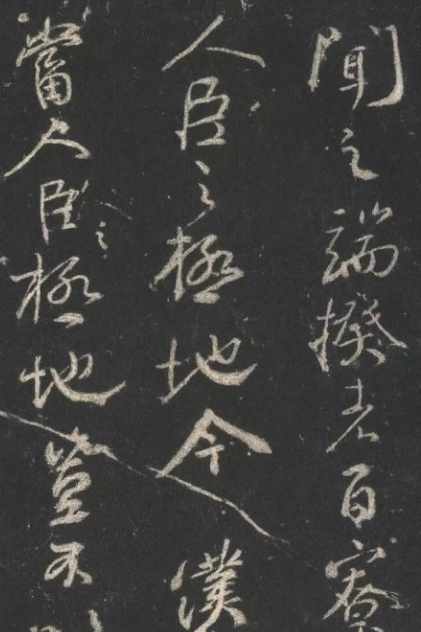 聞之端揆者百寮
人臣之極地今僕
當人臣之極地豈不